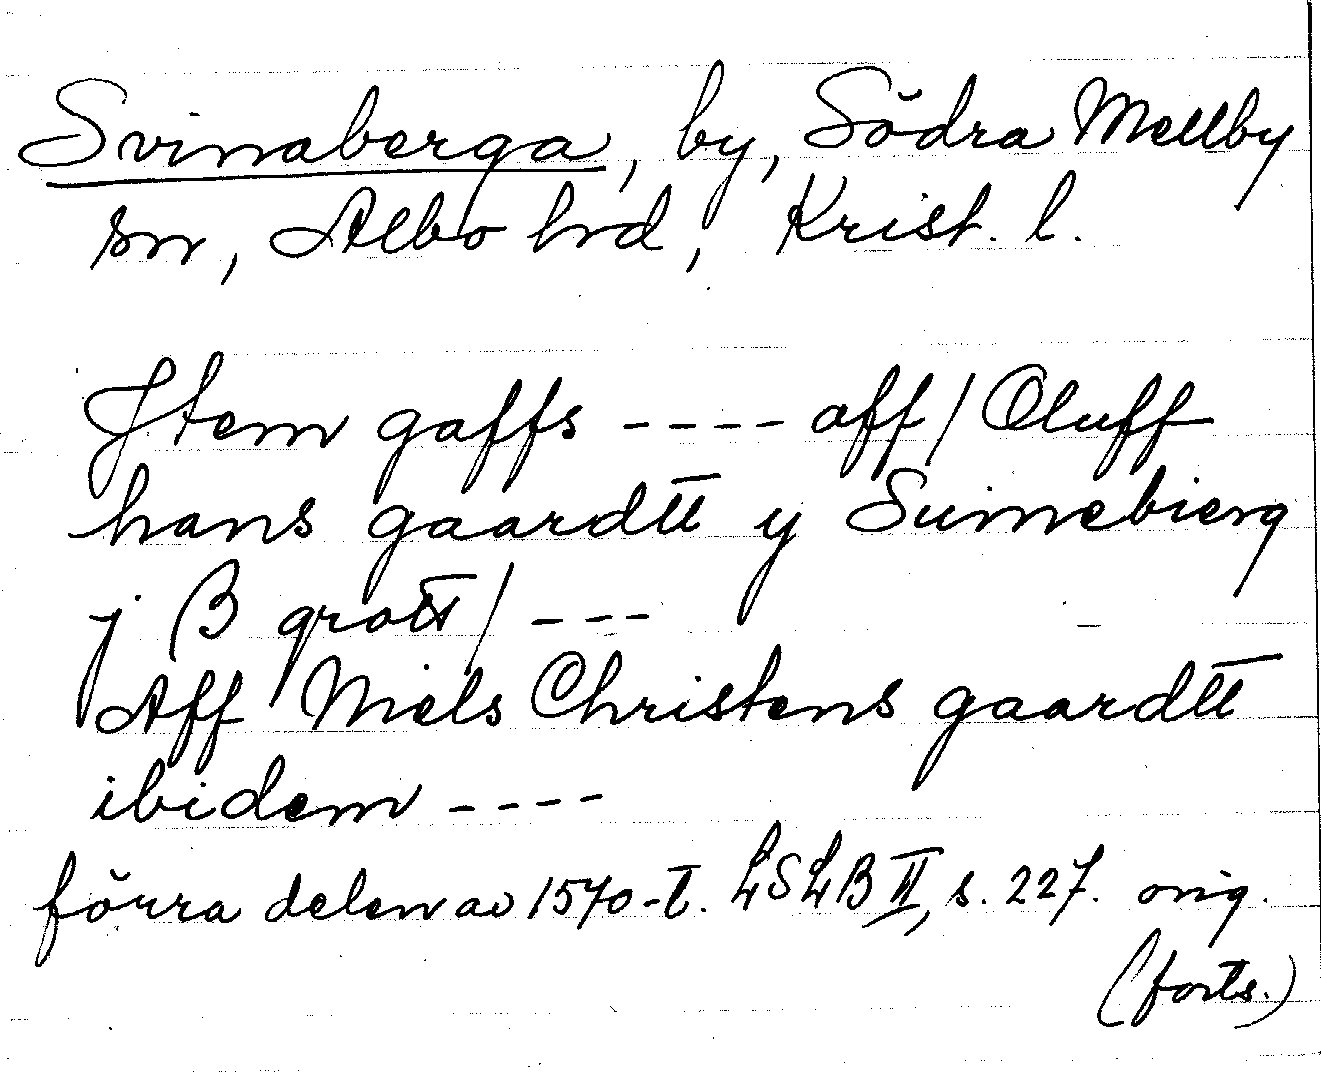 Svinaberga, by, Södra Mellby
sn, Albo hrd, Krist. l.
Jtem gaffs ---- aff / Oluff
hans gaardtt y Suinebierg
j ß grott / ---
Aff Niels Christens gaardtt
ibidem ----
förra delen av 1570-t. LSLB II, s. 227. orig.
(forts.)